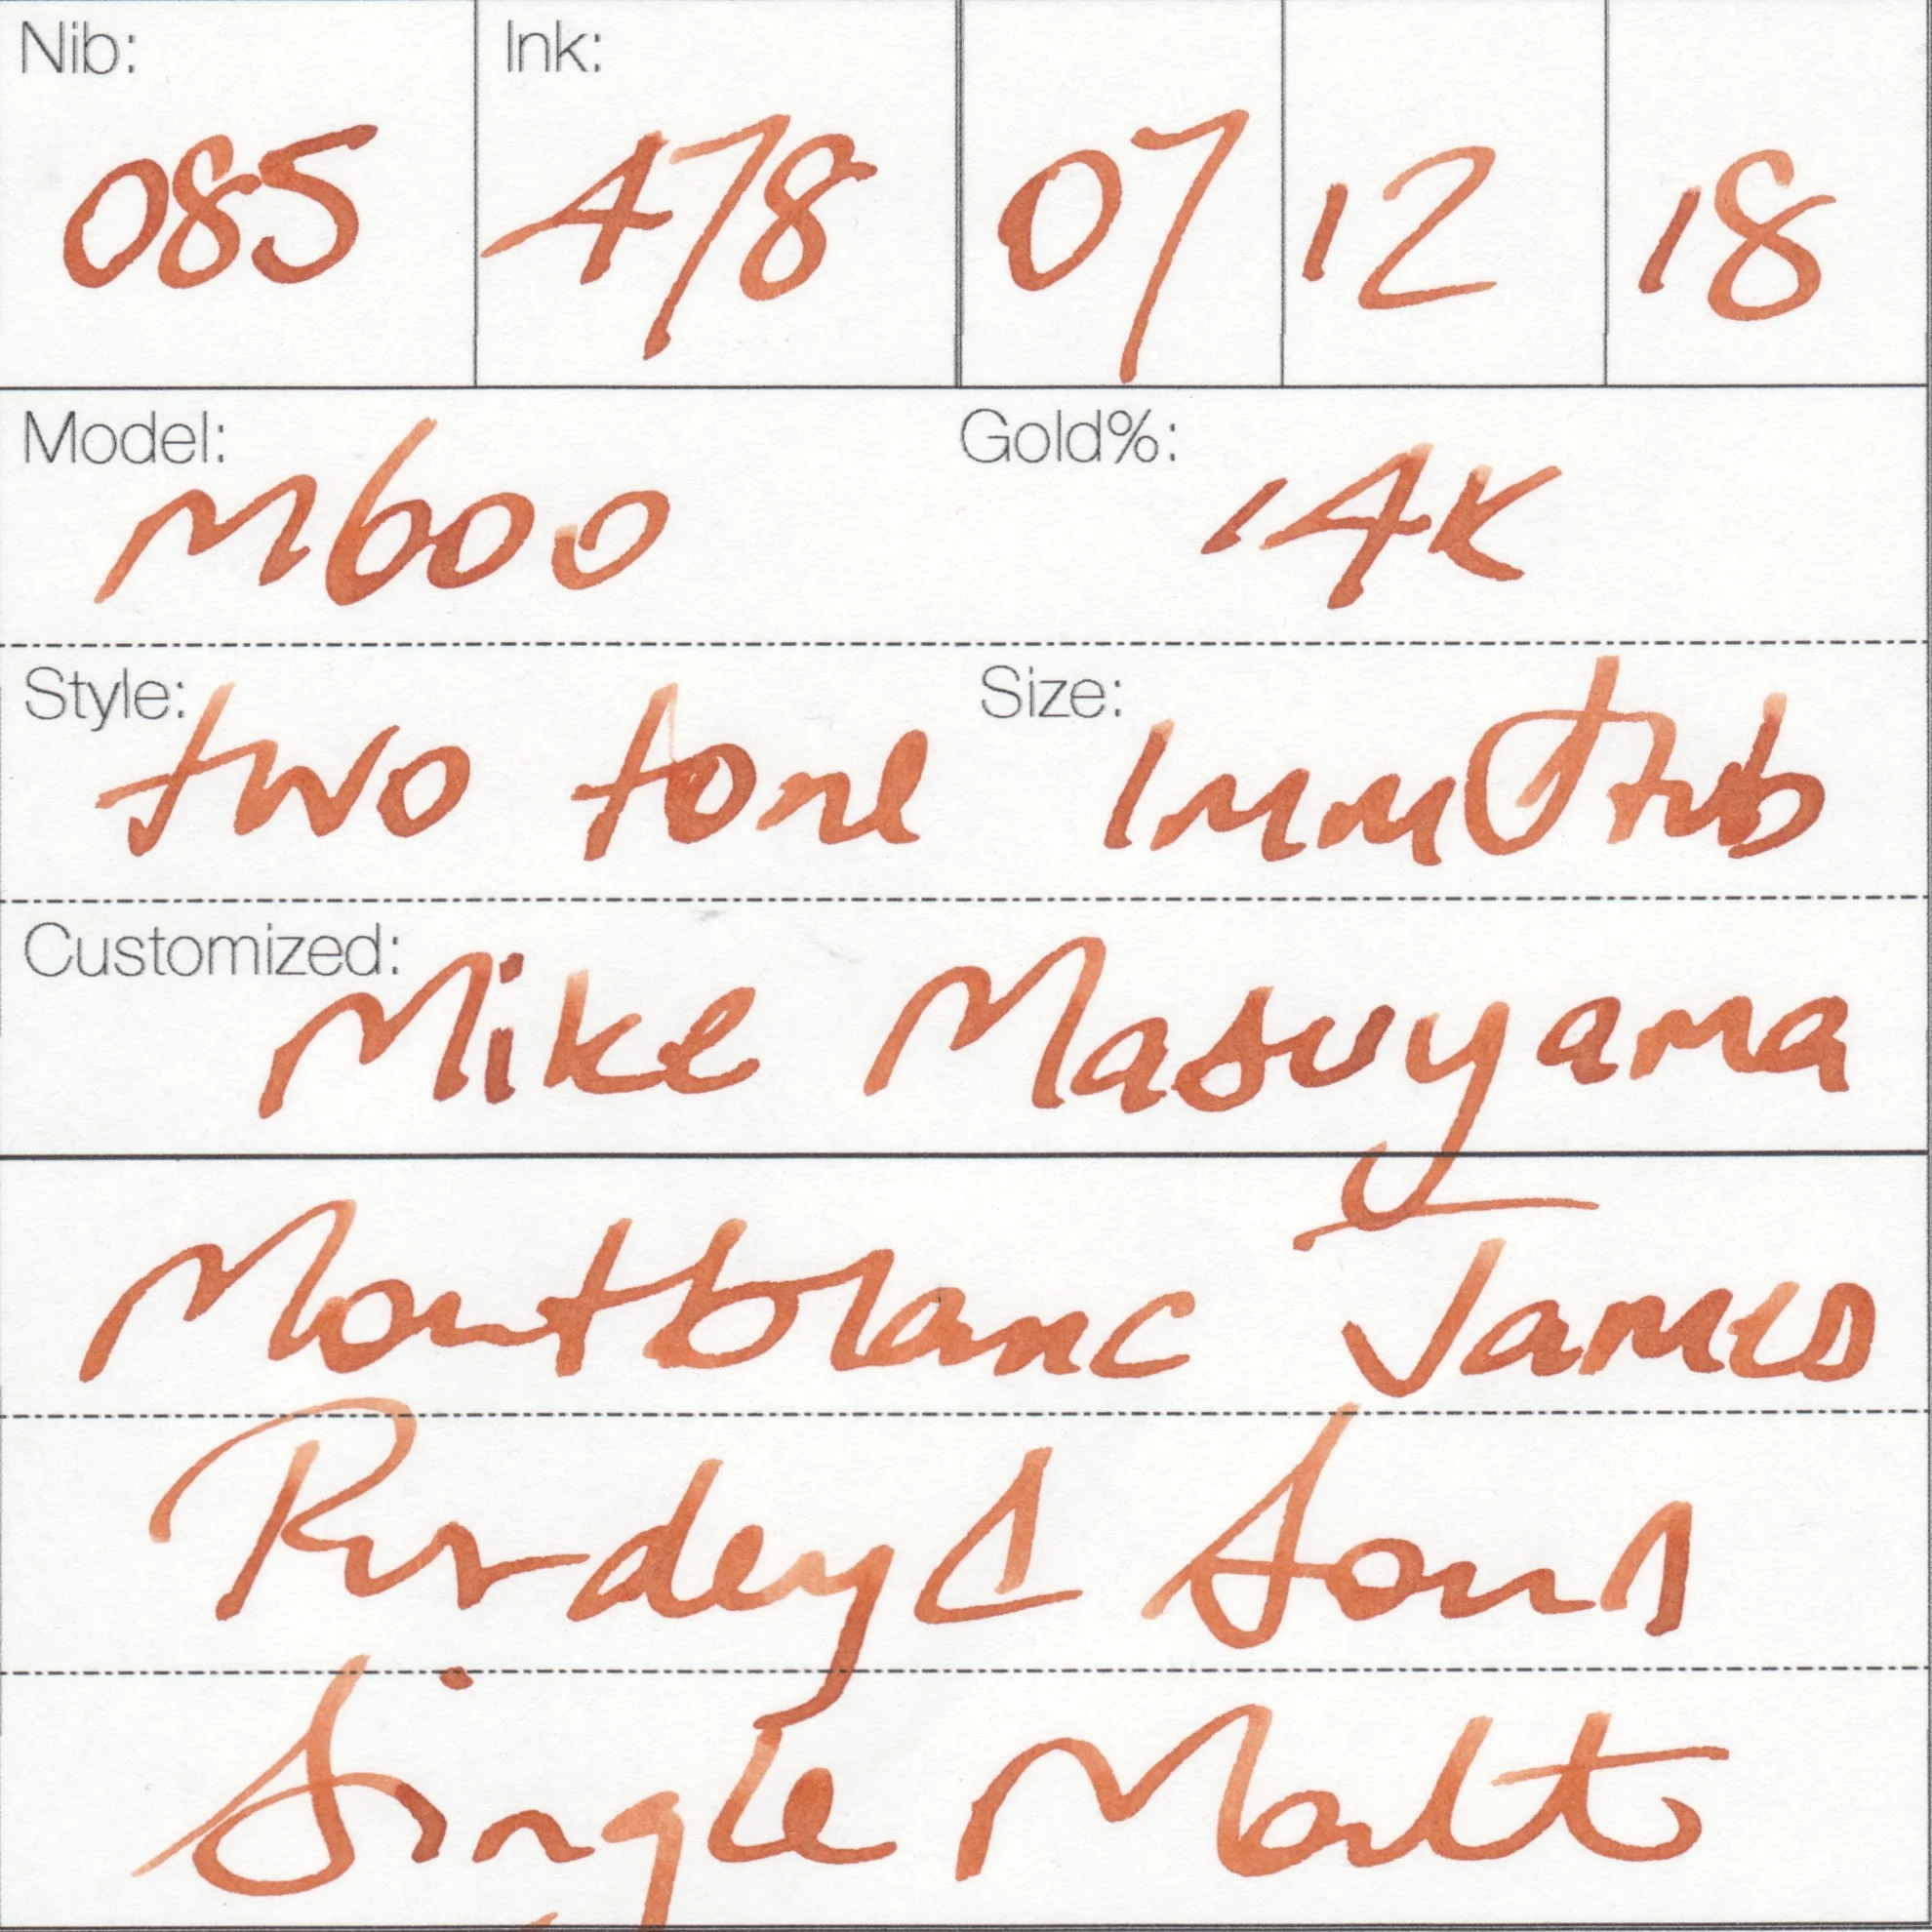 Nib: Ink:
085 478 07 12 18
Model: M600 Gold%: 14K
Style: two tone Size: 1mm Stub
Customized: Mike Masuyama
Montblanc James
Purdey & Sons
Single Malt